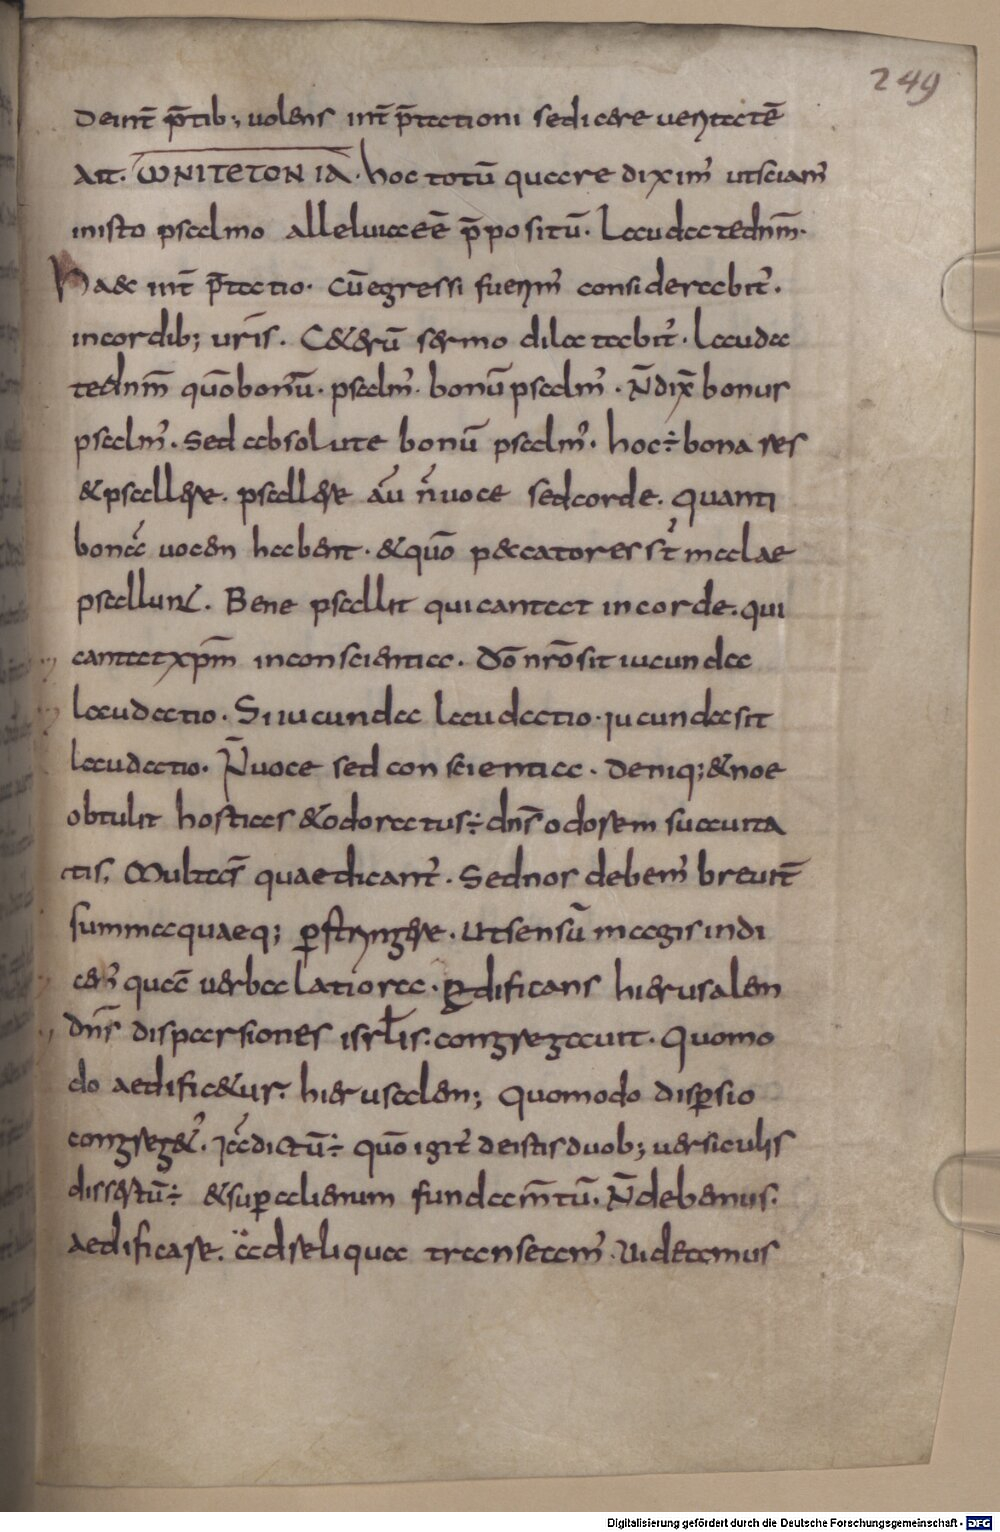 249
deint̄ p̄tib; uolens int̄ p̄tationi sedicere ueritatē
ait. ωNITETONIA. hoc totū quare diximꝰ utsciamꝰ
inisto psalmo alleluiaeē p̄positū. Laudatednm̄.
Haec int̄ p̄tatio. Cūegressi fuerimꝰ considerabitꝰ.
incordib; uris̄. C&erū sermo dilatabitꝰ. Lauda
tednm̄ quō bonū. psalmꝰ. bonū psalmꝰ. N̄dix̄ bonus
psalmꝰ. Sed absolute bonū psalmꝰ. hoc÷ bona res
&psallere. psallere aū n̄uoce sedcorde. Quanti
bonā uocem habent. &quō peccatores st̄ in aelae
psallunt. Bene psallit quicantat in corde. qui
cantatxpm̄ inconscientia. dō nr̄o sit iucunda
laudatio. Si iucunda laudatio. iucundasit
laudatio. N̄uoce sed conscientia. deniq; &noe
obtulit hostias &odoratus÷ dns̄ odorem suauita
tis. Multas̄ quaedicantꝰ. Sednos debemꝰ breuit̄
summaquaeq; p̱stringere. Utsensū magisindi
cemꝰ quā uerba latiora. Aedificans hierusalem
dns̄ dispersiones isrl̄is. congregauit. Quomo
do aedific&ur. hierusalem; Quomodo disp̱sio
congreg&ꝰ. Iādictū÷ quō igit̄ deistis duob; uersiculis
dissertū÷ &sup̱alienum fundam̄tū. N̄debemus.
aedificare. adreliqua transeamꝰ. Uideamus
Digitalisierung gefördert durch die Deutsche Forschungsgemeinschaft - DFG